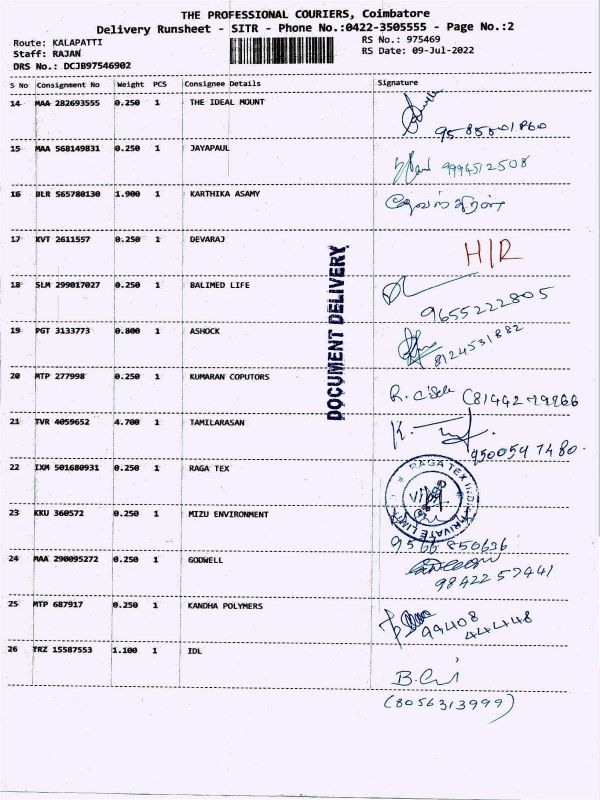 THE PROFESSIONAL COURIERS, Coimbatore
Delivery Runsheet - SITR - Phone No.:0422-3505555 - Page No.:2
Route: KALAPATTI
RS No.: 975469
Staff: RAJAN
RS Date: 09-Jul-2022
DRS No.: DCJB97546902
S No Consignment No Weight PCS Consignee Details Signature
14 MAA 282693555 0.250 1 THE IDEAL MOUNT
9585501860
15 MAA 568149831 0.250 1 JAYAPAUL
9994512508
16 BLR 565780130 1.900 1 KARTHIKA ASAMY
17 KVT 2611557 0.250 1 DEVARAJ
H/R
18 SLM 299017027 0.250 1 BALIMED LIFE
9655222805
19 PGT 3133773 0.800 1 ASHOCK
8124531882
DOCUMENT DELIVERY
20 MTP 277998 0.250 1 KUMARAN COPUTORS
21 TVR 4059652 4.700 1 TAMILARASAN
9500597480.
22 IXM 501680931 0.250 1 RAGA TEX
RAGA TEX INDIA PRIVATE LIMITED
23 KKU 360572 0.250 1 MIZU ENVIRONMENT
9566850636
24 MAA 290095272 0.250 1 GODWELL
9842257441
25 MTP 687917 0.250 1 KANDHA POLYMERS
99408
44448
26 TRZ 15587553 1.100 1 IDL
(8056313999)